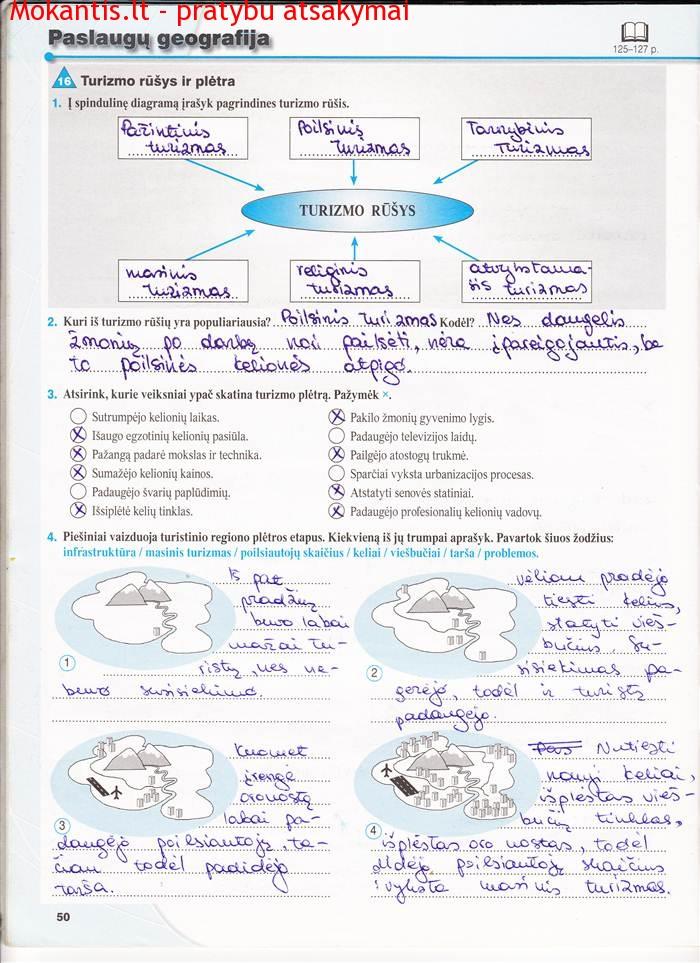 Mokantis.lt - pratybu atsakymai
Paslaugų geografija
125–127 p.
16 Turizmo rūšys ir plėtra
1. Į spindulinę diagramą įrašyk pagrindines turizmo rūšis.
Pažintinis turizmas
Poilsinis turizmas
Tarnybinis turizmas
TURIZMO RŪŠYS
masinis turizmas
religinis turizmas
atvykstama-
sis turizmas
2. Kuri iš turizmo rūšių yra populiariausia? Poilsinis turizmas Kodėl? Nes daugelis
žmonių po darbų nori pailsėti, nėra įpareigojantis, be
to poilsinės kelionės atpigo.
3. Atsirink, kurie veiksniai ypač skatina turizmo plėtrą. Pažymėk ×.
Sutrumpėjo kelionių laikas.
× Išaugo egzotinių kelionių pasiūla.
× Pažangą padarė mokslas ir technika.
× Sumažėjo kelionių kainos.
Padaugėjo švarių paplūdimių.
× Išsiplėtė kelių tinklas.
× Pakilo žmonių gyvenimo lygis.
Padaugėjo televizijos laidų.
× Pailgėjo atostogų trukmė.
Sparčiai vyksta urbanizacijos procesas.
× Atstatyti senovės statiniai.
× Padaugėjo profesionalių kelionių vadovų.
4. Piešiniai vaizduoja turistinio regiono plėtros etapus. Kiekvieną iš jų trumpai aprašyk. Pavartok šiuos žodžius:
infrastruktūra / masinis turizmas / poilsiautojų skaičius / keliai / viešbučiai / tarša / problemos.
1
Iš pat
pradžių
buvo labai
mažai tu-
ristų, nes ne-
buvo susisiekimo.
2
vėliau pradėjo
tiesti kelius,
statyti vieš-
bučius. Su-
sisiekimas pa-
gerėjo, todėl ir turistų
padaugėjo.
3
Kuomet
įrengė
orouostą
labai pa-
daugėjo poilsiautojų, ta-
čiau todėl padidėjo
tarša.
4
Nutiesti
nauji keliai,
išplėstas vieš-
bučių tinklas,
išplėstas oro uostas, todėl
didėjo poilsiautojų skaičius
įvyksta masinis turizmas.
50